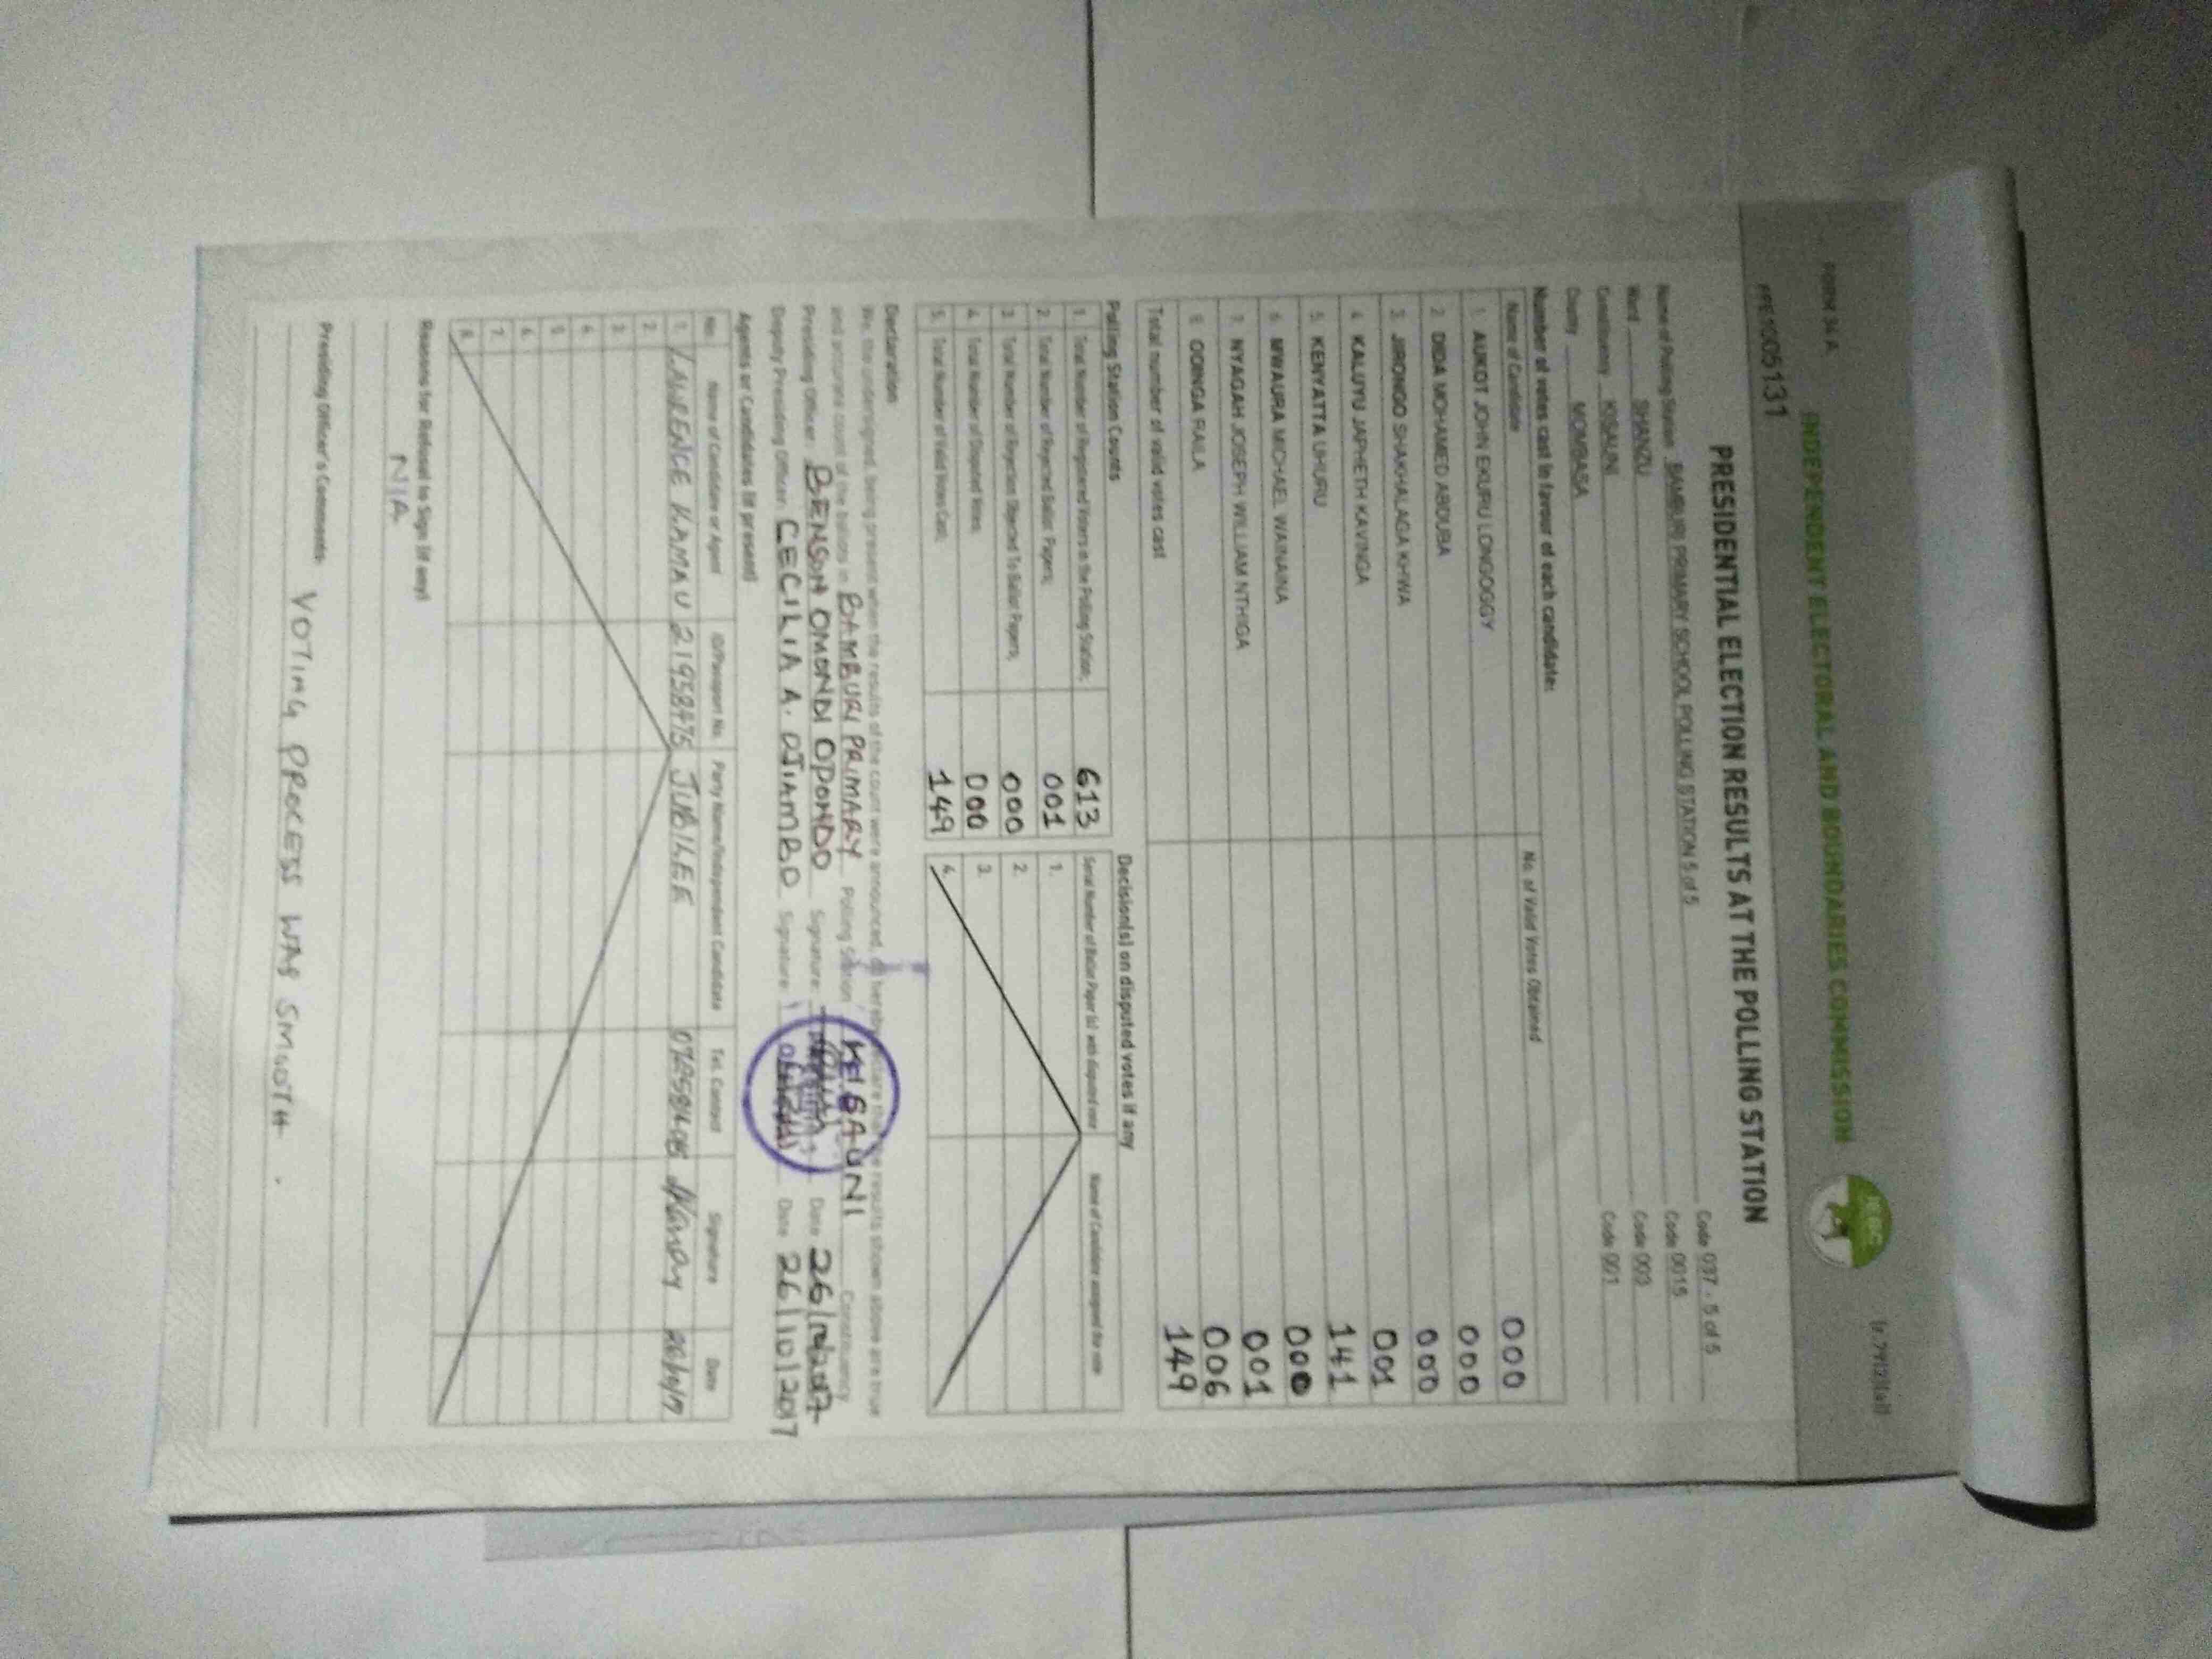 FORM 34 A
(r.79(2)(a))
INDEPENDENT ELECTORAL AND BOUNDARIES COMMISSION
IEBC
PRESIDENTIAL ELECTION RESULTS AT THE POLLING STATION
Name of Polling Station BAMBURI PRIMARY SCHOOL POLLING STATION 5 of 5 Code 037 - 5 of 5
Ward SHANZU Code 0015
Constituency KISAUNI Code 003
County MOMBASA Code 001
Number of votes cast in favour of each candidate:
Name of Candidate No. of Valid Votes Obtained
1. AUKOT JOHN EKURU LONGOGGY 000
2. DIDA MOHAMED ABDUBA 000
3. JIRONGO SHAKHALAGA KHWA 000
4. KALUYU JAPHETH KAVINGA 001
5. KENYATTA UHURU 141
6. MWAURA MICHAEL WAINAINA 000
7. NYAGAH JOSEPH WILLIAM NTHIGA 001
8. ODINGA RAILA 006
Total number of valid votes cast 149
Polling Station Counts
1. Total Number of Registered Voters in the Polling Station; 613
2. Total Number of Rejected Ballot Papers; 001
3. Total Number of Rejection Objected To Ballot Papers; 000
4. Total Number of Disputed Votes; 000
5. Total Number of Valid Votes Cast; 149
Decision(s) on disputed votes if any
Serial Number of Ballot Paper (s) with disputed vote Name of Candidate assigned the vote
1.
2.
3.
4.
Declaration
We, the undersigned, being present when the results of the count were announced, do hereby declare that the results shown above are true
and accurate count of the ballots in BAMBURI PRIMARY Polling Station KISAUNI Constituency
Presiding Officer BENSON OMONDI OPONDO Signature: Date 26/10/2017
Deputy Presiding Officer CECILIA A. OJIAMBO Signature: Date 26/10/2017
Agents or Candidates (if present)
No. Name of Candidate or Agent ID/Passport No. Party Name/Independent Candidate Tel. Contact Signature Date
1. LAWRENCE KAMAU 21958475 JUBILEE 26/10/17
2.
3.
4.
5.
6.
7.
8.
Reasons for Refusal to Sign (if any)
N/A
Presiding Officer's Comments: VOTING PROCESS WAS SMOOTH.